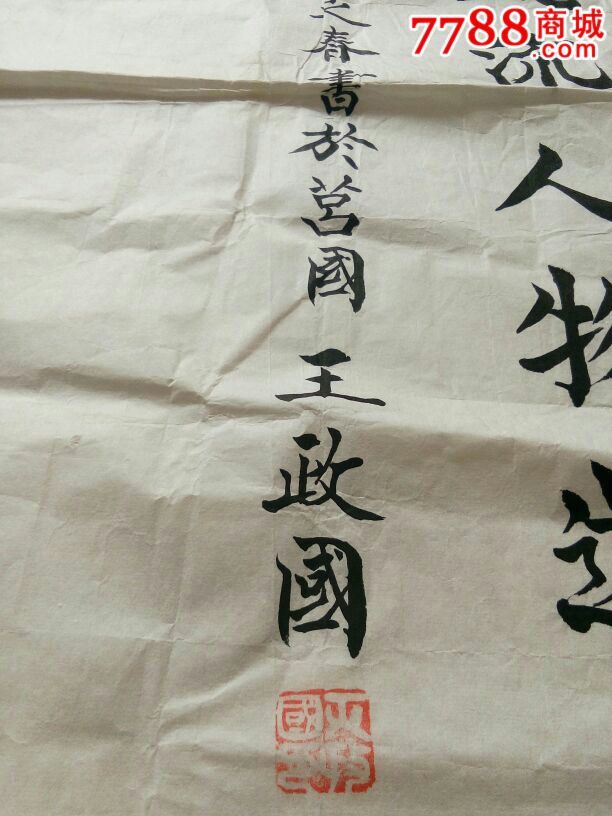 7788商城
.com
流人物
之春書於莒國 王政國